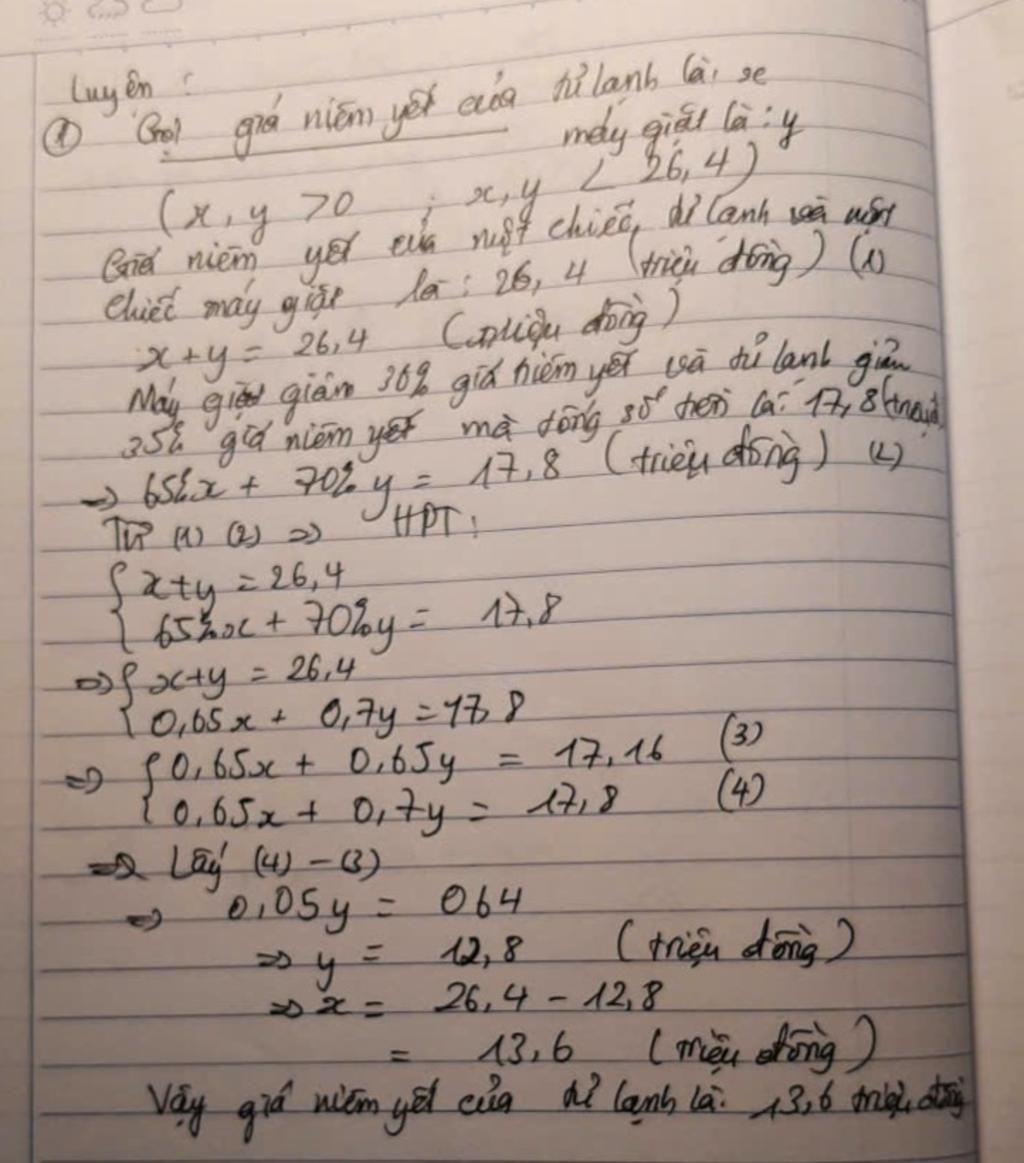 Luyện :
① Gọi giá niêm yết của tủ lạnh là, x
máy giặt là : y
(x, y > 0 ; x, y < 26,4)
Giá niêm yết của một chiếc, tủ lạnh và một
chiếc máy giặt là : 26,4 (triệu đồng) (1)
x + y = 26,4 (triệu đồng)
Máy giặt giảm 30% giá niêm yết và tủ lạnh giảm
35% giá niêm yết mà tổng số tiền là: 17,8 (triệu)
=> 65%x + 70%y = 17,8 (triệu đồng) (2)
Từ (1) (2) => HPT :
{ x + y = 26,4
{ 65%x + 70%y = 17,8
=> { x + y = 26,4
{ 0,65x + 0,7y = 17,8
=> { 0,65x + 0,65y = 17,16 (3)
{ 0,65x + 0,7y = 17,8 (4)
=> Lấy (4) - (3)
=> 0,05y = 064
=> y = 12,8 (triệu đồng)
=> x = 26,4 - 12,8
= 13,6 (triệu đồng)
Vậy giá niêm yết của tủ lạnh là: 13,6 triệu đồng